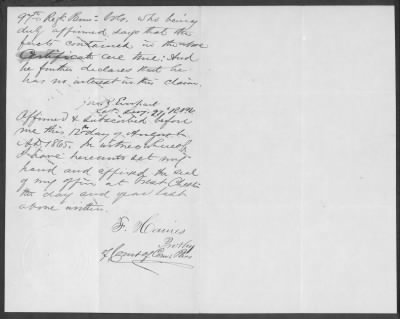 97th Regt Penna Vols. who being
duly affirmed says that the
facts contained in the above
Certificate are true: And
he further declares that he
has no interest in this claim.
Late Surg. 97th P.V.
Affirmed & subscribed before
me this 12th day of August
A.D. 1865. In witness whereof
I have hereunto set my
hand and affixed the seal
of my office at West Chester
the day and year last
above written.
F. Haines
Prothy
of Court of Com: Pleas